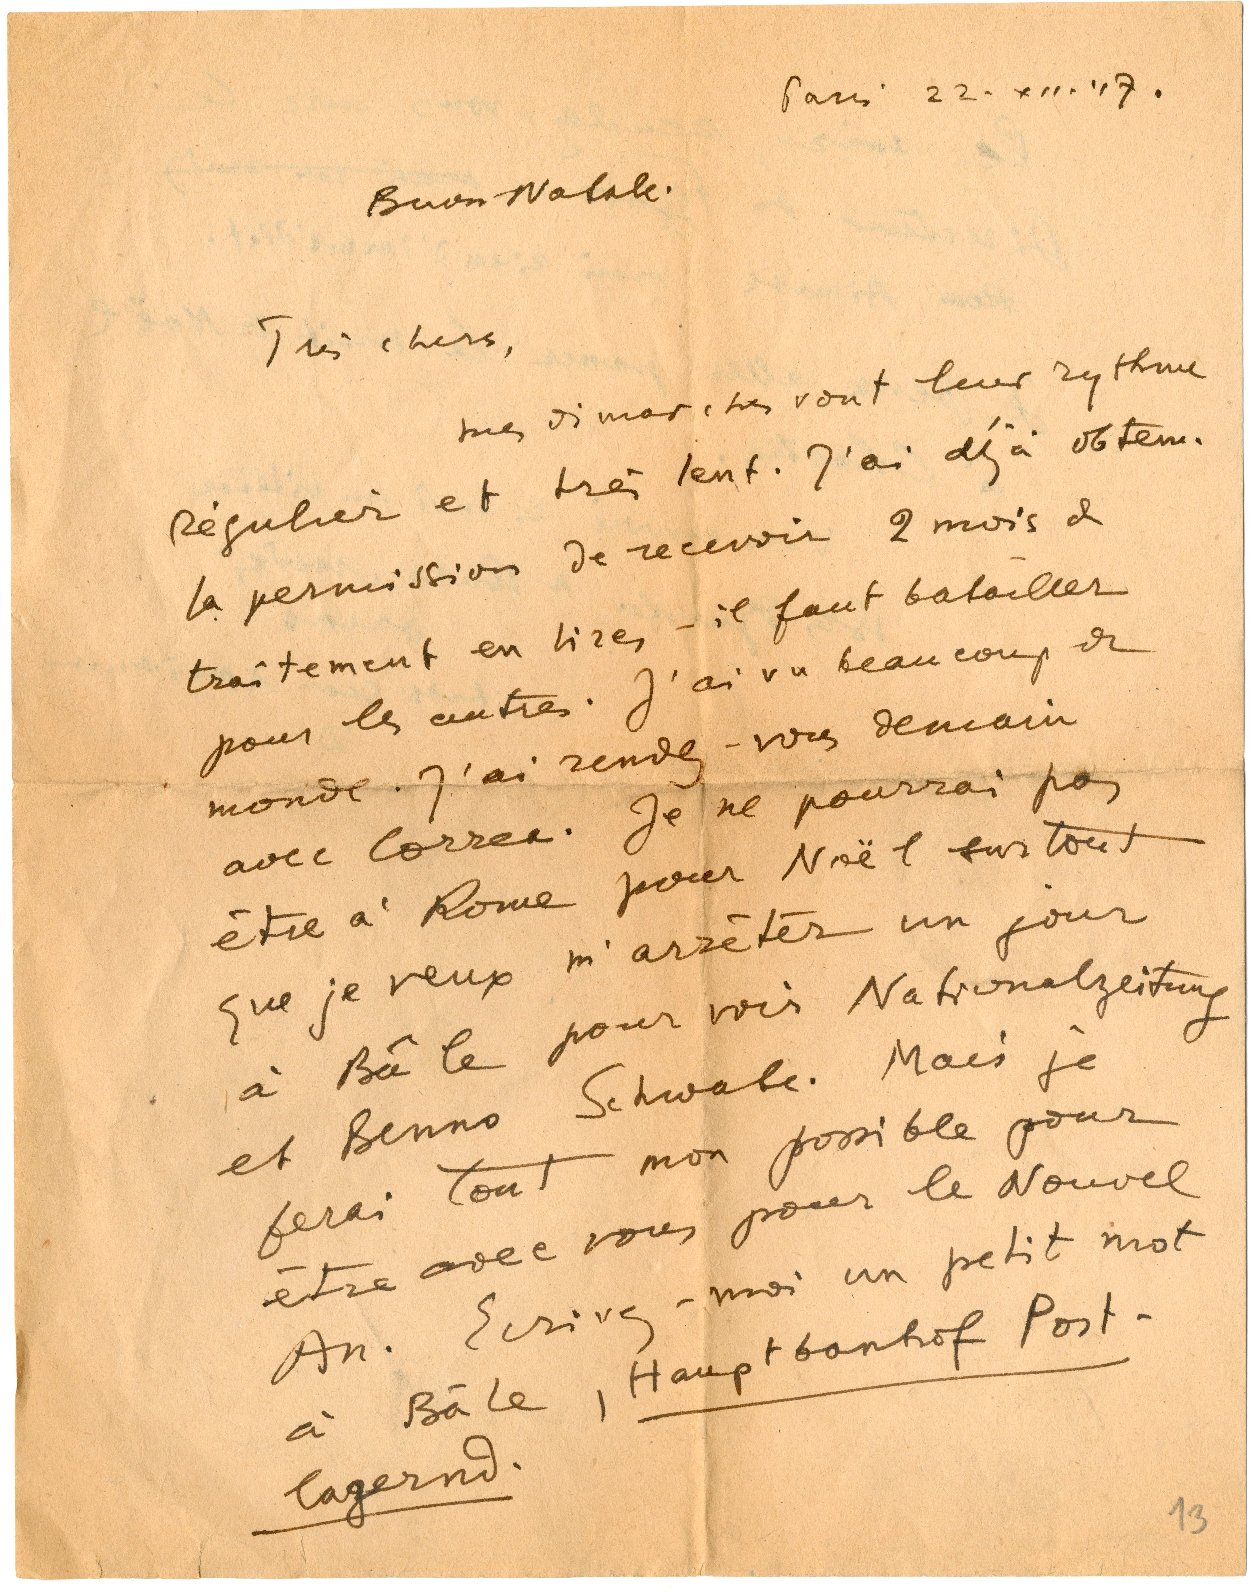 Paris 22. XII. 47.
Buon Natale.
Très chers,
mes démarches vont leur rythme
régulier et très lent. J'ai déjà obtenu
la permission de recevoir 2 mois de
traîtement en lires – il faut batailler
pour les autres. J'ai vu beaucoup de
monde. J'ai rendez-vous demain
avec Correa. Je ne pourrai pas
être à Rome pour Noël surtout
que je veux m'arrêter un jour
à Bâle pour voir Nationalzeitung
et Benno Schwabe. Mais je
ferai tout mon possible pour
être avec vous pour le Nouvel
An. Ecrivez-moi un petit mot
à Bâle, Hauptbanhof Post-
lagernd.
13